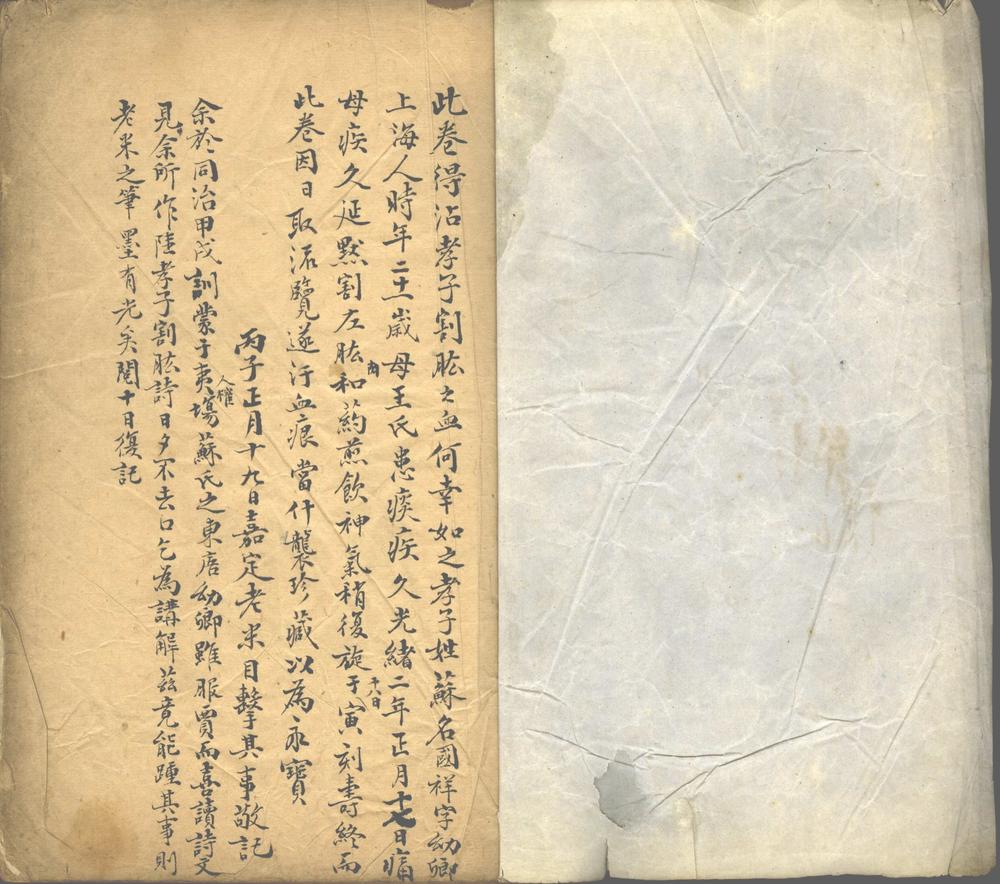 此卷得沾孝子割肱之血何幸如之孝子姓蘇名國祥字幼卿
上海人時年二十一歲母王氏患痰疾久光緒二年正月十七日痛
母疾久延默割左肱肉和葯煎飲神氣稍復旋于十八日寅刻壽終而
此卷因日取流覽遂汙血痕當什襲珍藏以為永寶
丙子正月十九日嘉定老米目擊其事敬記
余於同治甲戌訓蒙于夷塲蘇氏之東席幼卿雖服賈而喜讀詩文
見余所作陸孝子割肱詩日夕不去口乞為講解茲竟能踵其事則
老米之筆墨有光矣閱十日復記